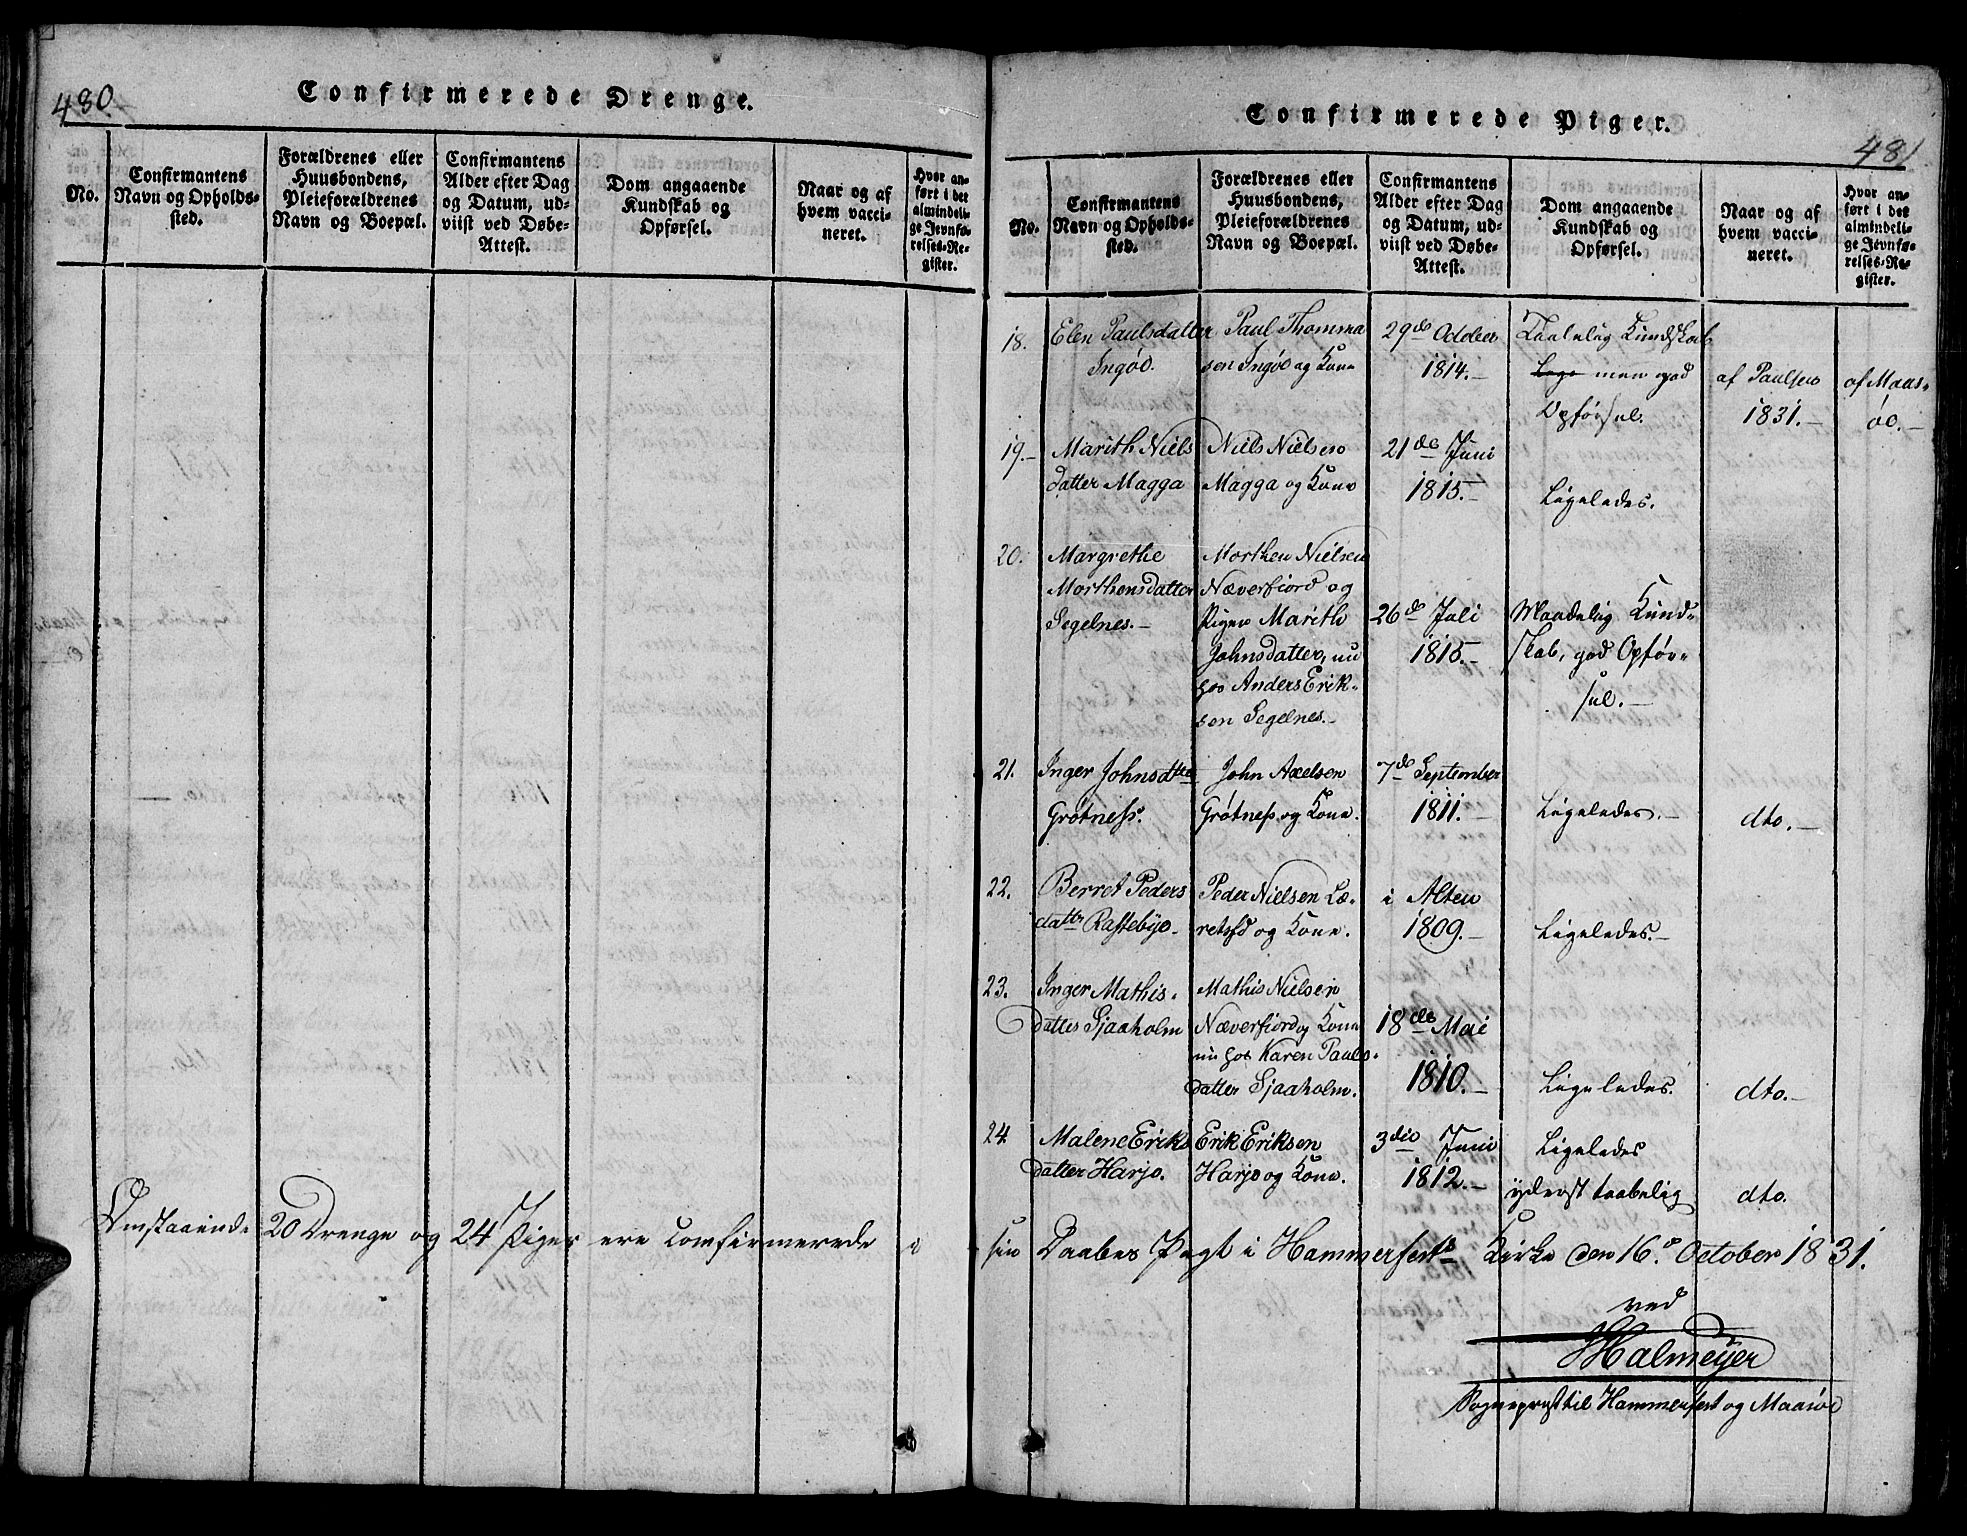 480.
Confirmerede Drenge.
No.
Confirmantens
Navn og Opholds-
sted.
Forældrenes eller
Huusbondens,
Pleieforældrenes
Navn og Boepæl.
Confirmantens
Alder efter Dag
og Datum, ud-
viist ved Døbe-
Attest.
Dom angaaende
Kundskab og
Opførsel.
Naar og af
hvem vacci-
neret.
Hvor an-
ført i det
almindeli-
ge Jevnfø-
relses-Re-
gister.
Omstaaende 20 Drenge og 24 Piger ere Comfirmerede i
Confirmerede Piger.
481
No.
Confirmantens
Navn og Opholds-
sted.
Forældrenes eller
Huusbondens,
Pleieforældrenes
Navn og Boepæl.
Confirmantens
Alder efter Dag
og Datum, ud-
viist ved Døbe-
Attest.
Dom angaaende
Kundskab og
Opførsel.
Naar og af
hvem vacci-
neret.
Hvor an-
ført i det
almindeli-
ge Jevnfø-
relses-Re-
gister.
18.
Elen Paulsdatter
Ingøe.
Paul Thomma
sen Ingøe og Kone
29de October
1814.-
Taalelig Kundskab
men god
Opførsel.
af Paulsen
1831.-
af Maas-
øe.-
19.-
Marith Niels
datter Magga
Niels Nielsen
Magga og Kone
21de Juni
1815.-
Ligeledes.
20.
Margrethe
Morthensdatter
Segelnes.-
Morthen Nielsen
Næverfiord og
Pigen Marith
Johnsdatter, nu
hos Anders Erik-
sen Segelnes.-
26de Juli
1815.-
Maadelig Kund-
skab, god Opfør-
sel.-
21.
Inger Johnsdtter
Grøtness.
John Axelsen
Grøtness og Kone.
7de September
1811.-
Ligeledes.-
dto.-
22.
Berret Peders
datter Rastebye.
Peder Nielsen Læ-
retsfd og Kone.
i Alten
1809.-
Ligeledes.-
23.
Inger Mathis-
datter Sjaaholm
Mathis Nielsen
Næverfiord og Kone
nu hos Karen Pauls-
datter Sjaaholm.
18de Mai
1810.-
Ligeledes.
dto.-
24.
Malene Eriks
datter Harjo.
Erik Eriksen
Harjo og Kone.
3die Juni
1812.-
Ligeledes
yderst taabelig
dto.
sin Daabes Pagt i Hammerfests Kirke den 16de October 1831.
ved
Halmeyer
Sogneprest til Hammerfest og Maasøe